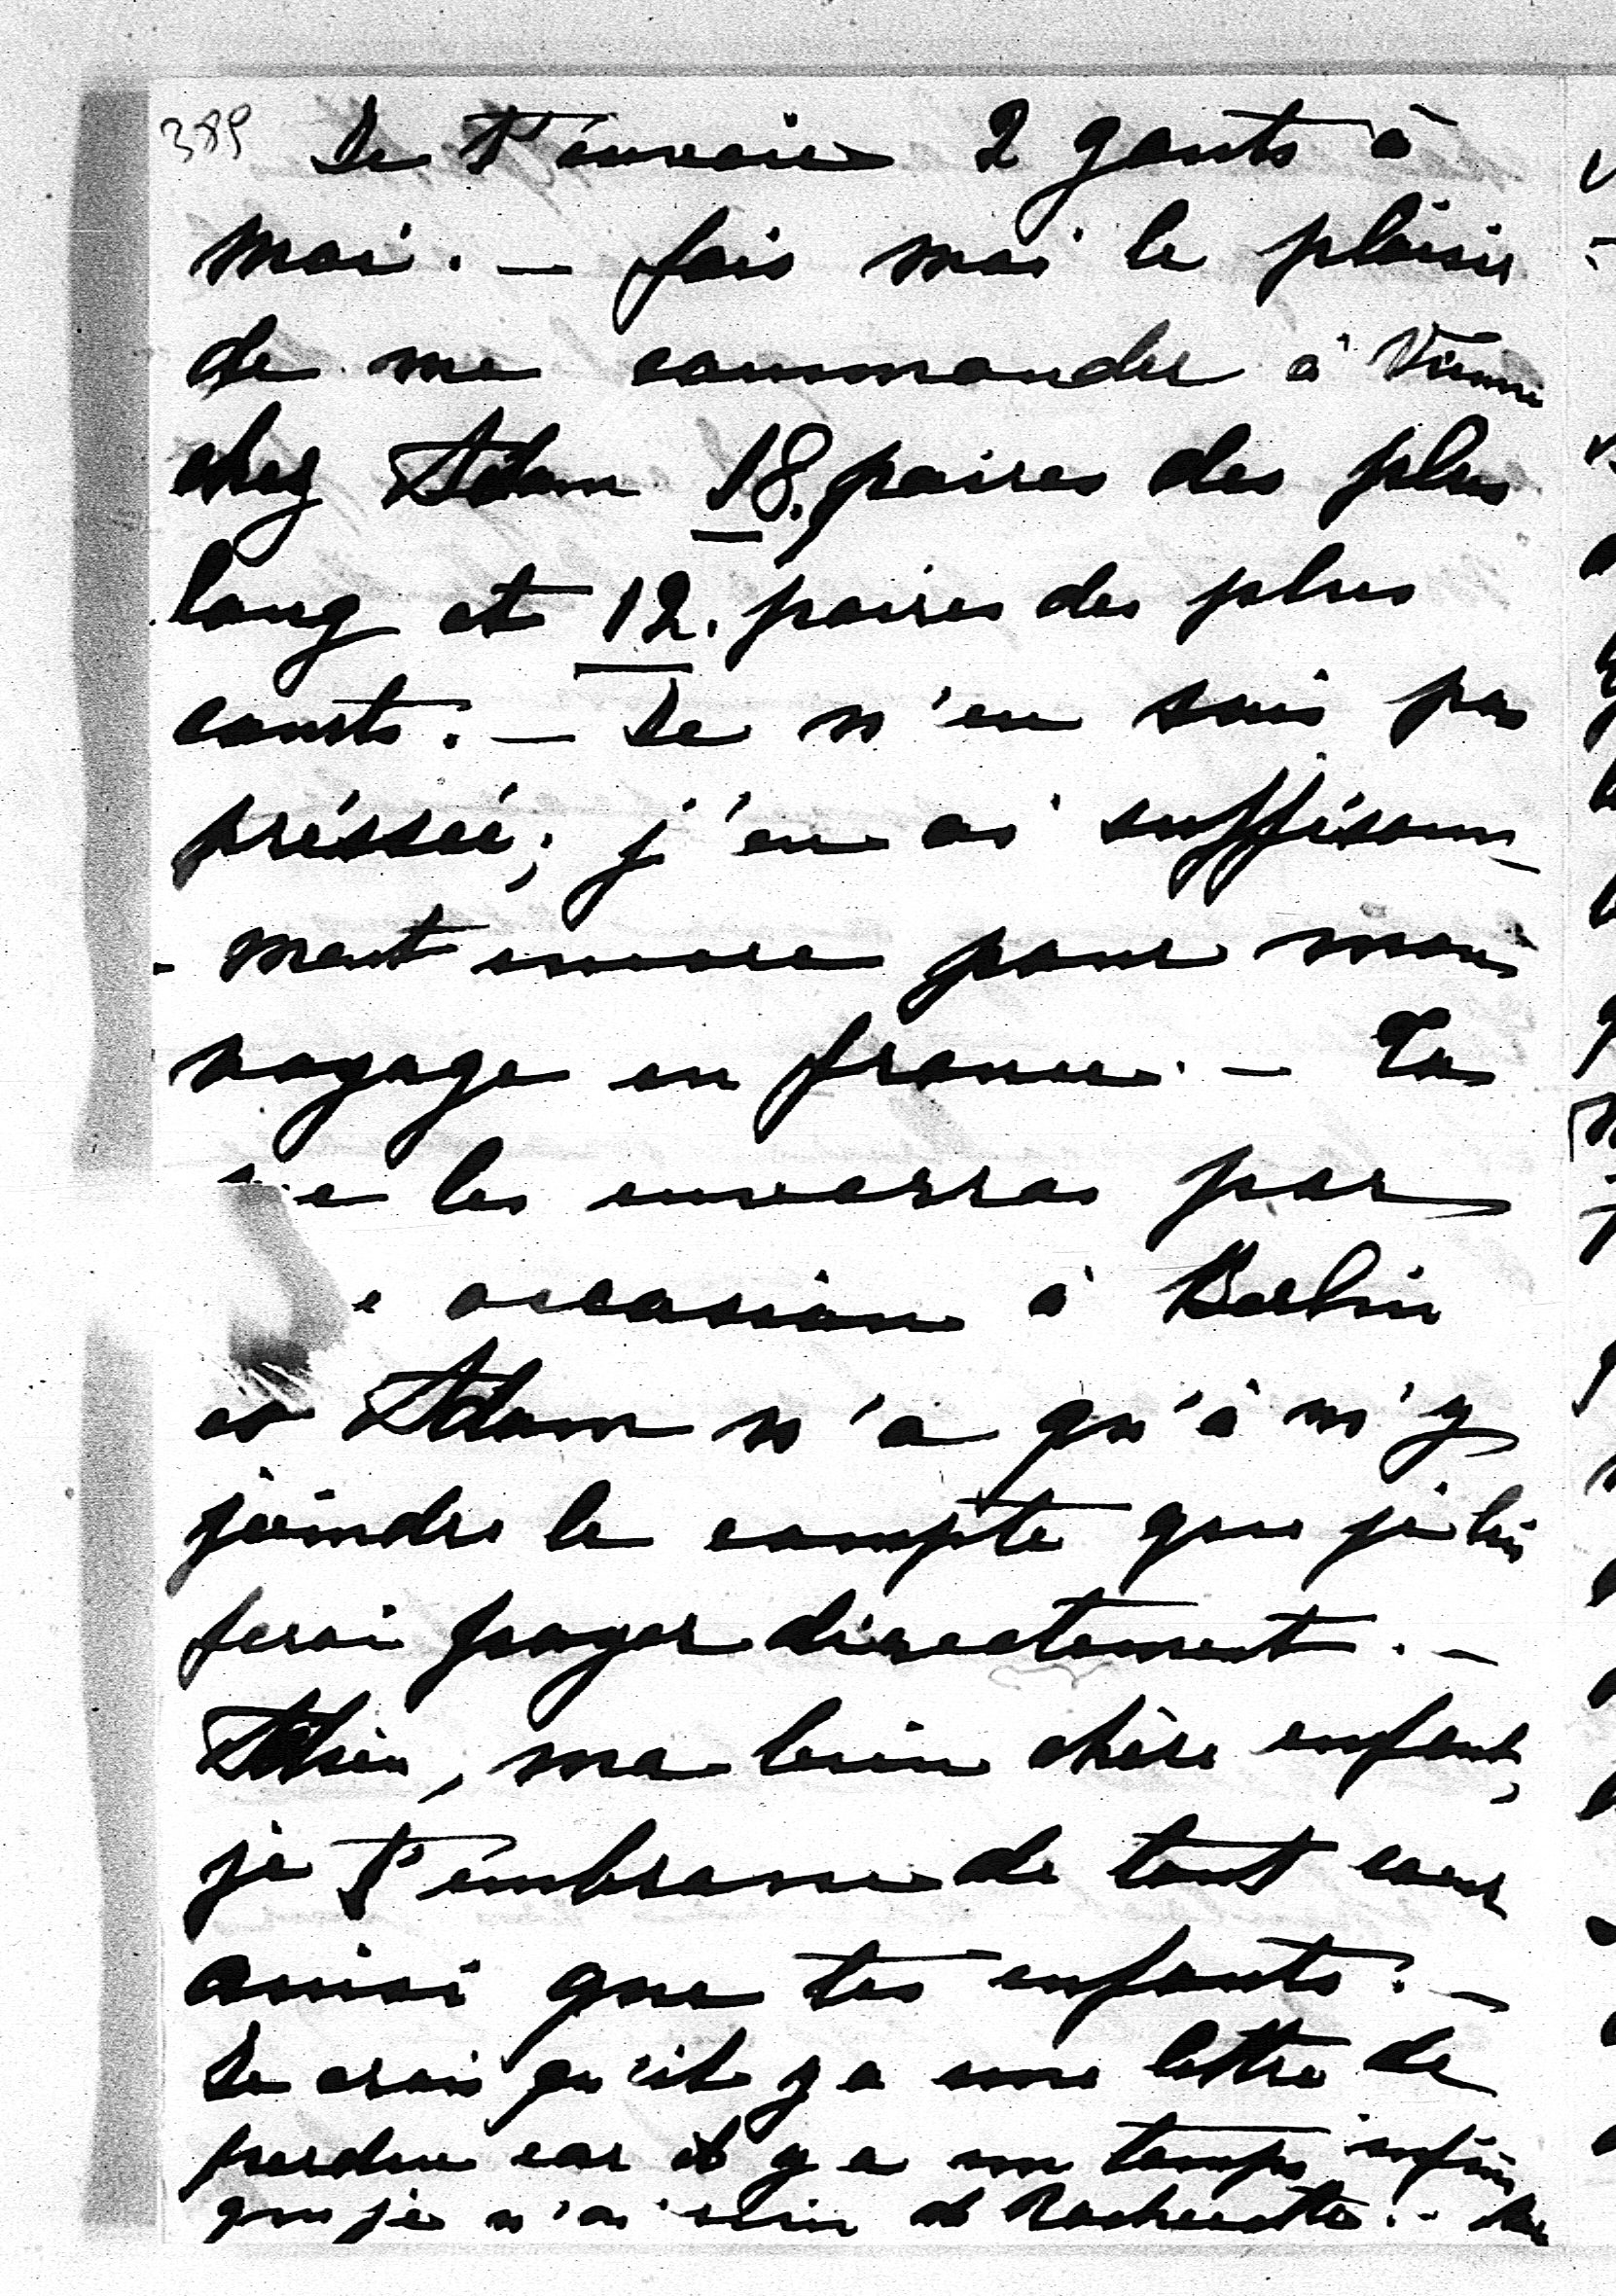 389
Je t'envoie 2 gants à
moi. — fais moi le plaisir
de me commander à Vienne
chez Adam 18. paires des plus
long et 12. paires des plus
courts. — Je n'en suis pas
préssée; j'en ai suffisam-
-ment encore pour mon
voyage en france. — Tu
me les enverras par
occasion à Berlin
et Adam n'a qu'à m'y
joindre le compte que je lui
ferai payer directement. —
Adieu, ma bien chère enfant,
je t'embrasse de tout cœur
ainsi que tes enfants. —
Je crois qu'il y a une lettre de
perdue car il y a un temps infini
que je n'ai rien de Rochecotte. -